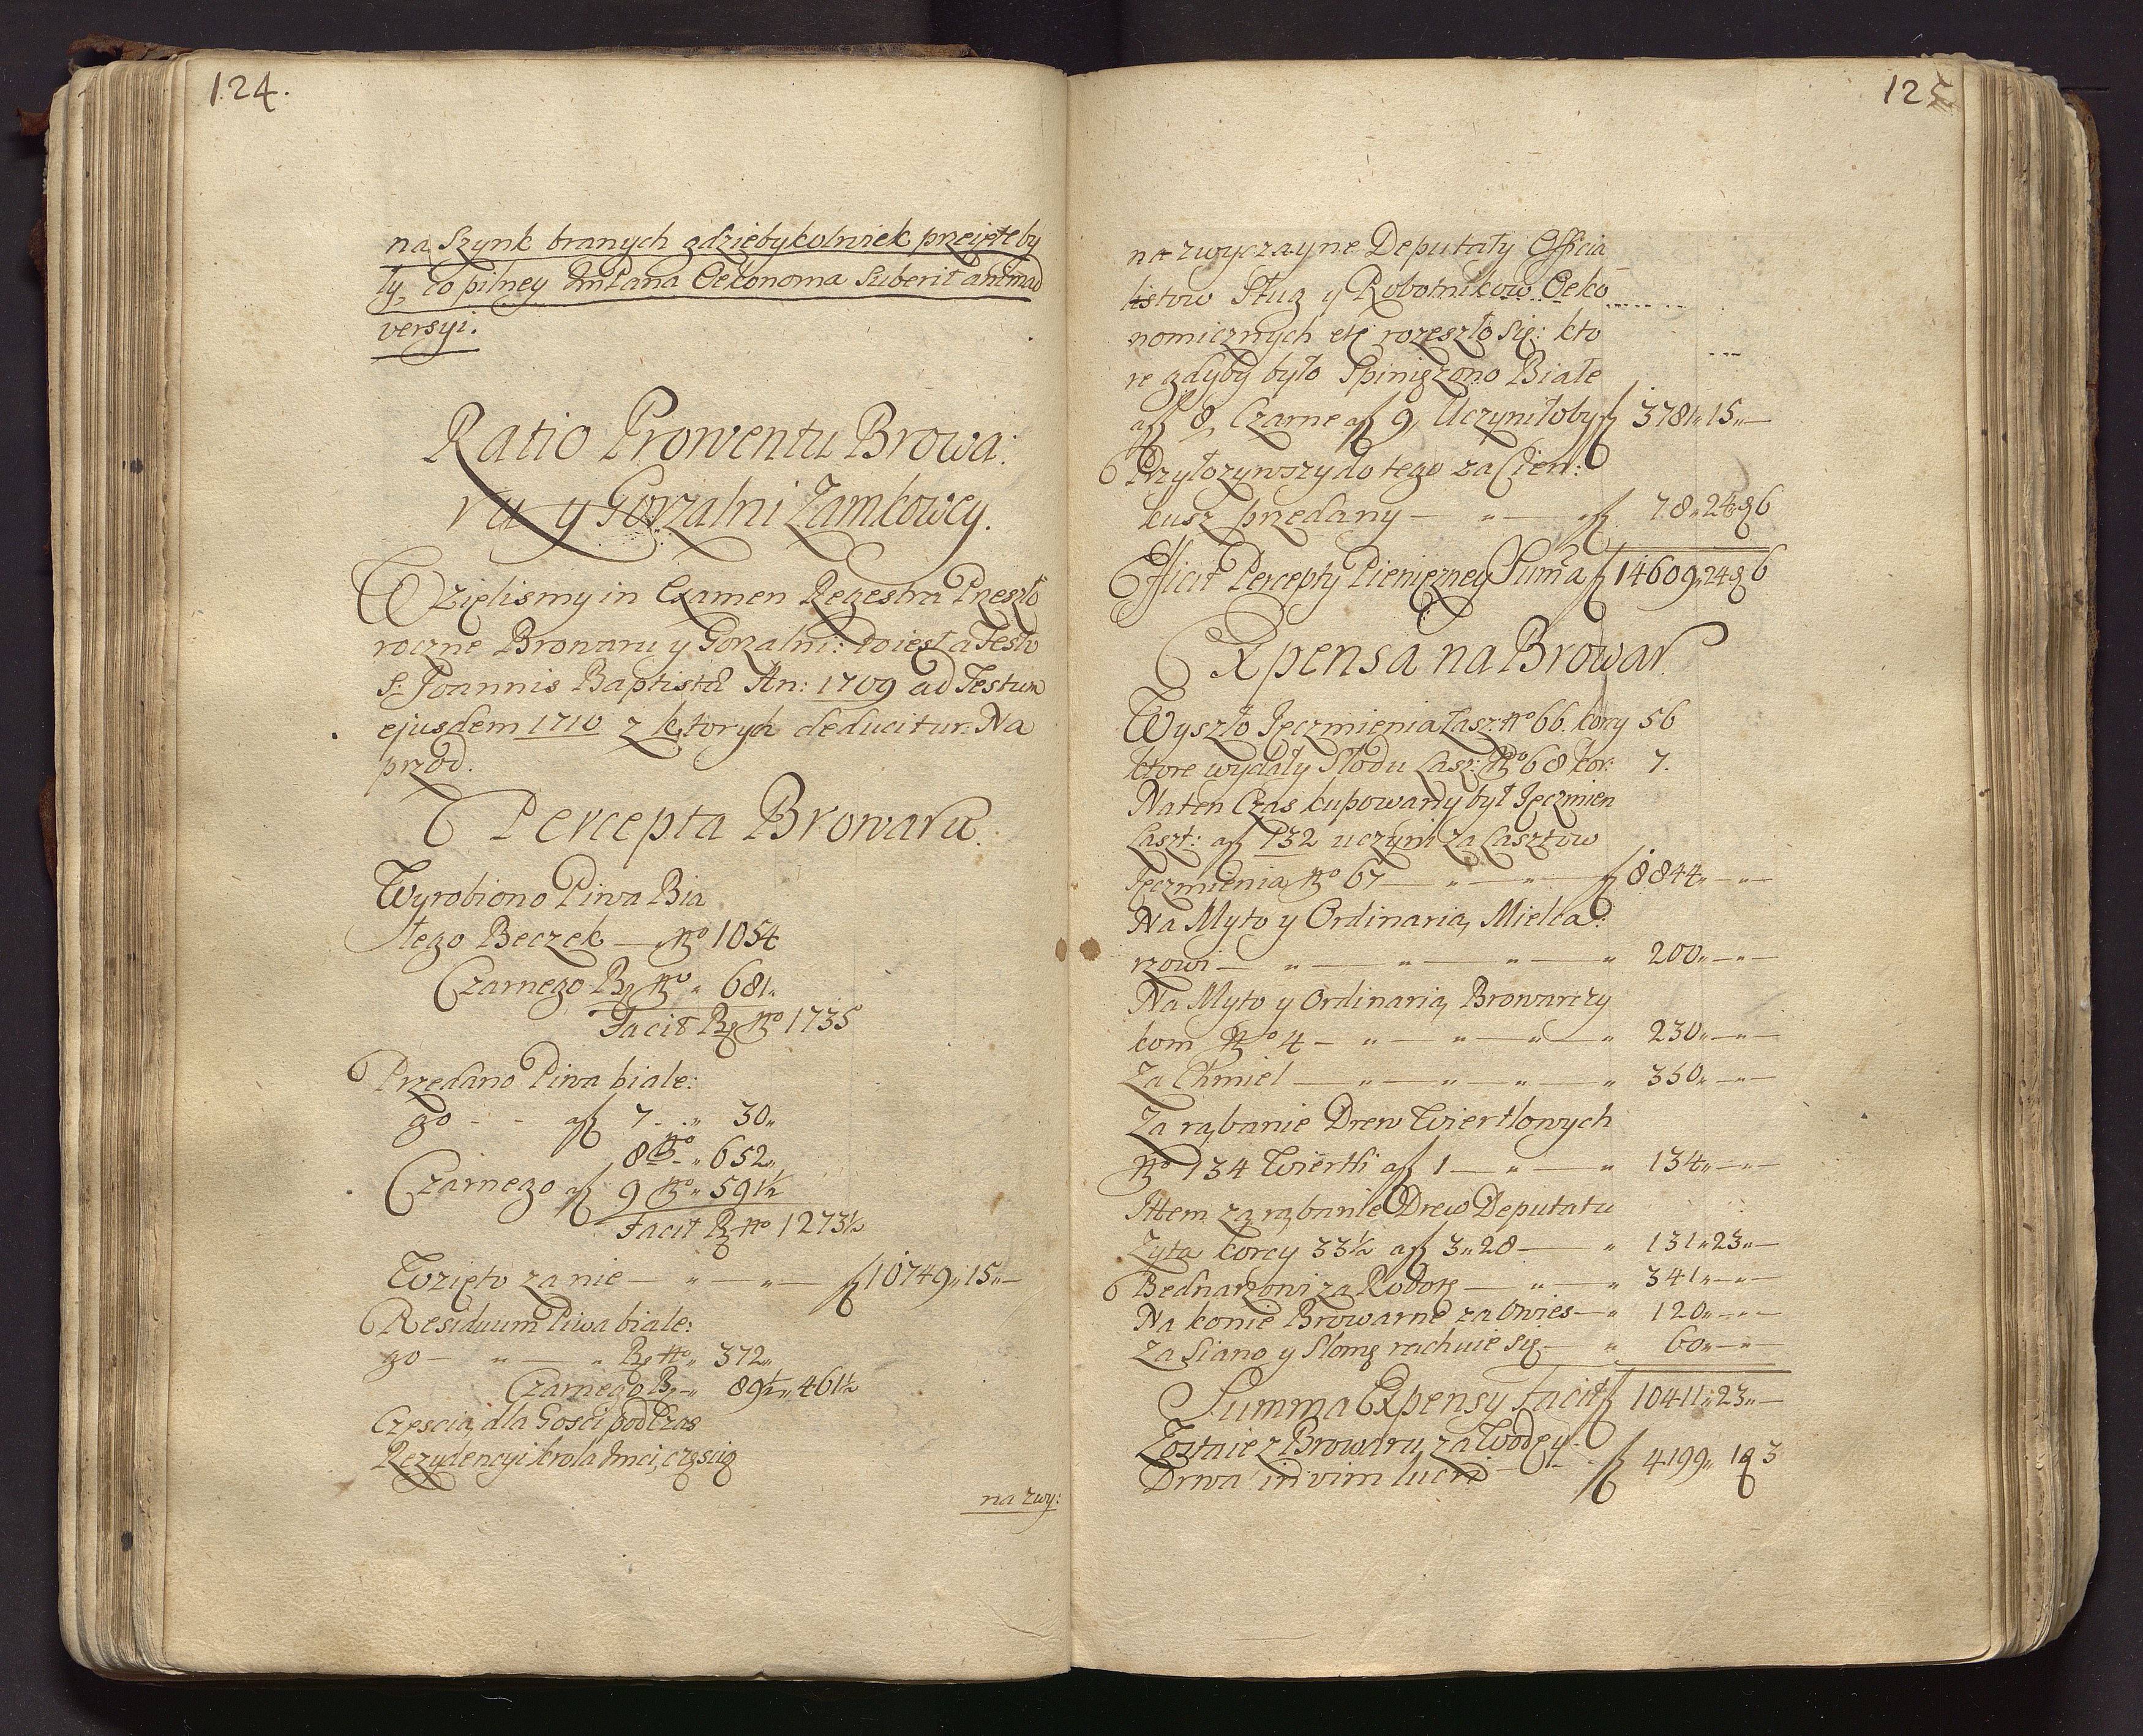 124.
na Szynk branych gdziebykolwiek przeięte by
ły, co pilney ImPana Oekonoma Suberit animad
versyi.
Ratio Prowentu Browa:
ru y Gorzalni Zamkowey.
Wzielismy in Examen Regestra Przeszło
roczne Browaru y Gorzalni: to iest a Festo
S: Joannis Baptistæ An: 1709 ad Festum
ejusdem 1710 z ktorych deducitur. Na
przod.
Percepta Browaru.
Wyrobiono Piwa Bia
łego Beczek — Nro 1054
Czarnego B. Nro " 681"
Facit B. Nro 1735
Przedano Piwa białe:
go - - a f 7 - " 30"
8 Nro " 652"
Czarnego a f 9 Nro " 591½
Facit B. Nro 1273½
Wzięto za nie — " — " — f 10749" 15" —
Residuum Piwa białe:
go — " — " B. Nro " 372"
Czarnego B. — " 89½ " 461½
Częscią dla Gosci podczas
Rezydencyi Krola Jmci, częscią
na zwy:
125
na zwyczayne Deputaty Officia
listow Sług y Robotnikow Oeko
nomicznych etc rozeszło się: kto
re gdyby było Spiniężono Białe
a f 8, Czarne a f 9, Uczyniłoby f 3781" 15" —
Przyłozywszy do tego za Cien:
kusz przedany — " — " f 78" 24 g 6
Efficit Percepty Pienięzney Suma f 14609" 24 g 6
Expensa na Browar
Wyszło Jęczmienia Łasz: Nro 66. korcy 56
ktore wydały Słodu Łasz: Nro 68 kor: 7.
Na ten Czas kupowany był Jęczmien
Łaszt: a f 132 uczyni za Łasztow
Jęczmienia Nro 67 — " — " — f 8844" — " —
Na Myto y Ordinarią Mielca:
rzowi — " — " — " — " 200" — " —
Na Myto y Ordinarią Browarczy
kom Nro 4 — " — " — " — " 230" — " —
Za Chmiel — " — " — " — " 350" — " —
Za rąbanie Drew Cwiertlowych
Nro 134 Cwiertli a f 1 — " — " 134" — " —
Item za rąbanie Drew Deputatu
Zyta korcy 33½ a f 3" 28 — " 131" 23" —
Bednarzowi za Robotę — " — " 341" — " —
Na konie Browarne za Owies — " 120" — " —
Za Siano y Słomę rachuie się — " 60" — " —
Summa Expensy Facit f 10411" 23" —
Zostaie z Browaru za Wodę y
Drwa in vim lucri — " — f 4199" 1 g 3